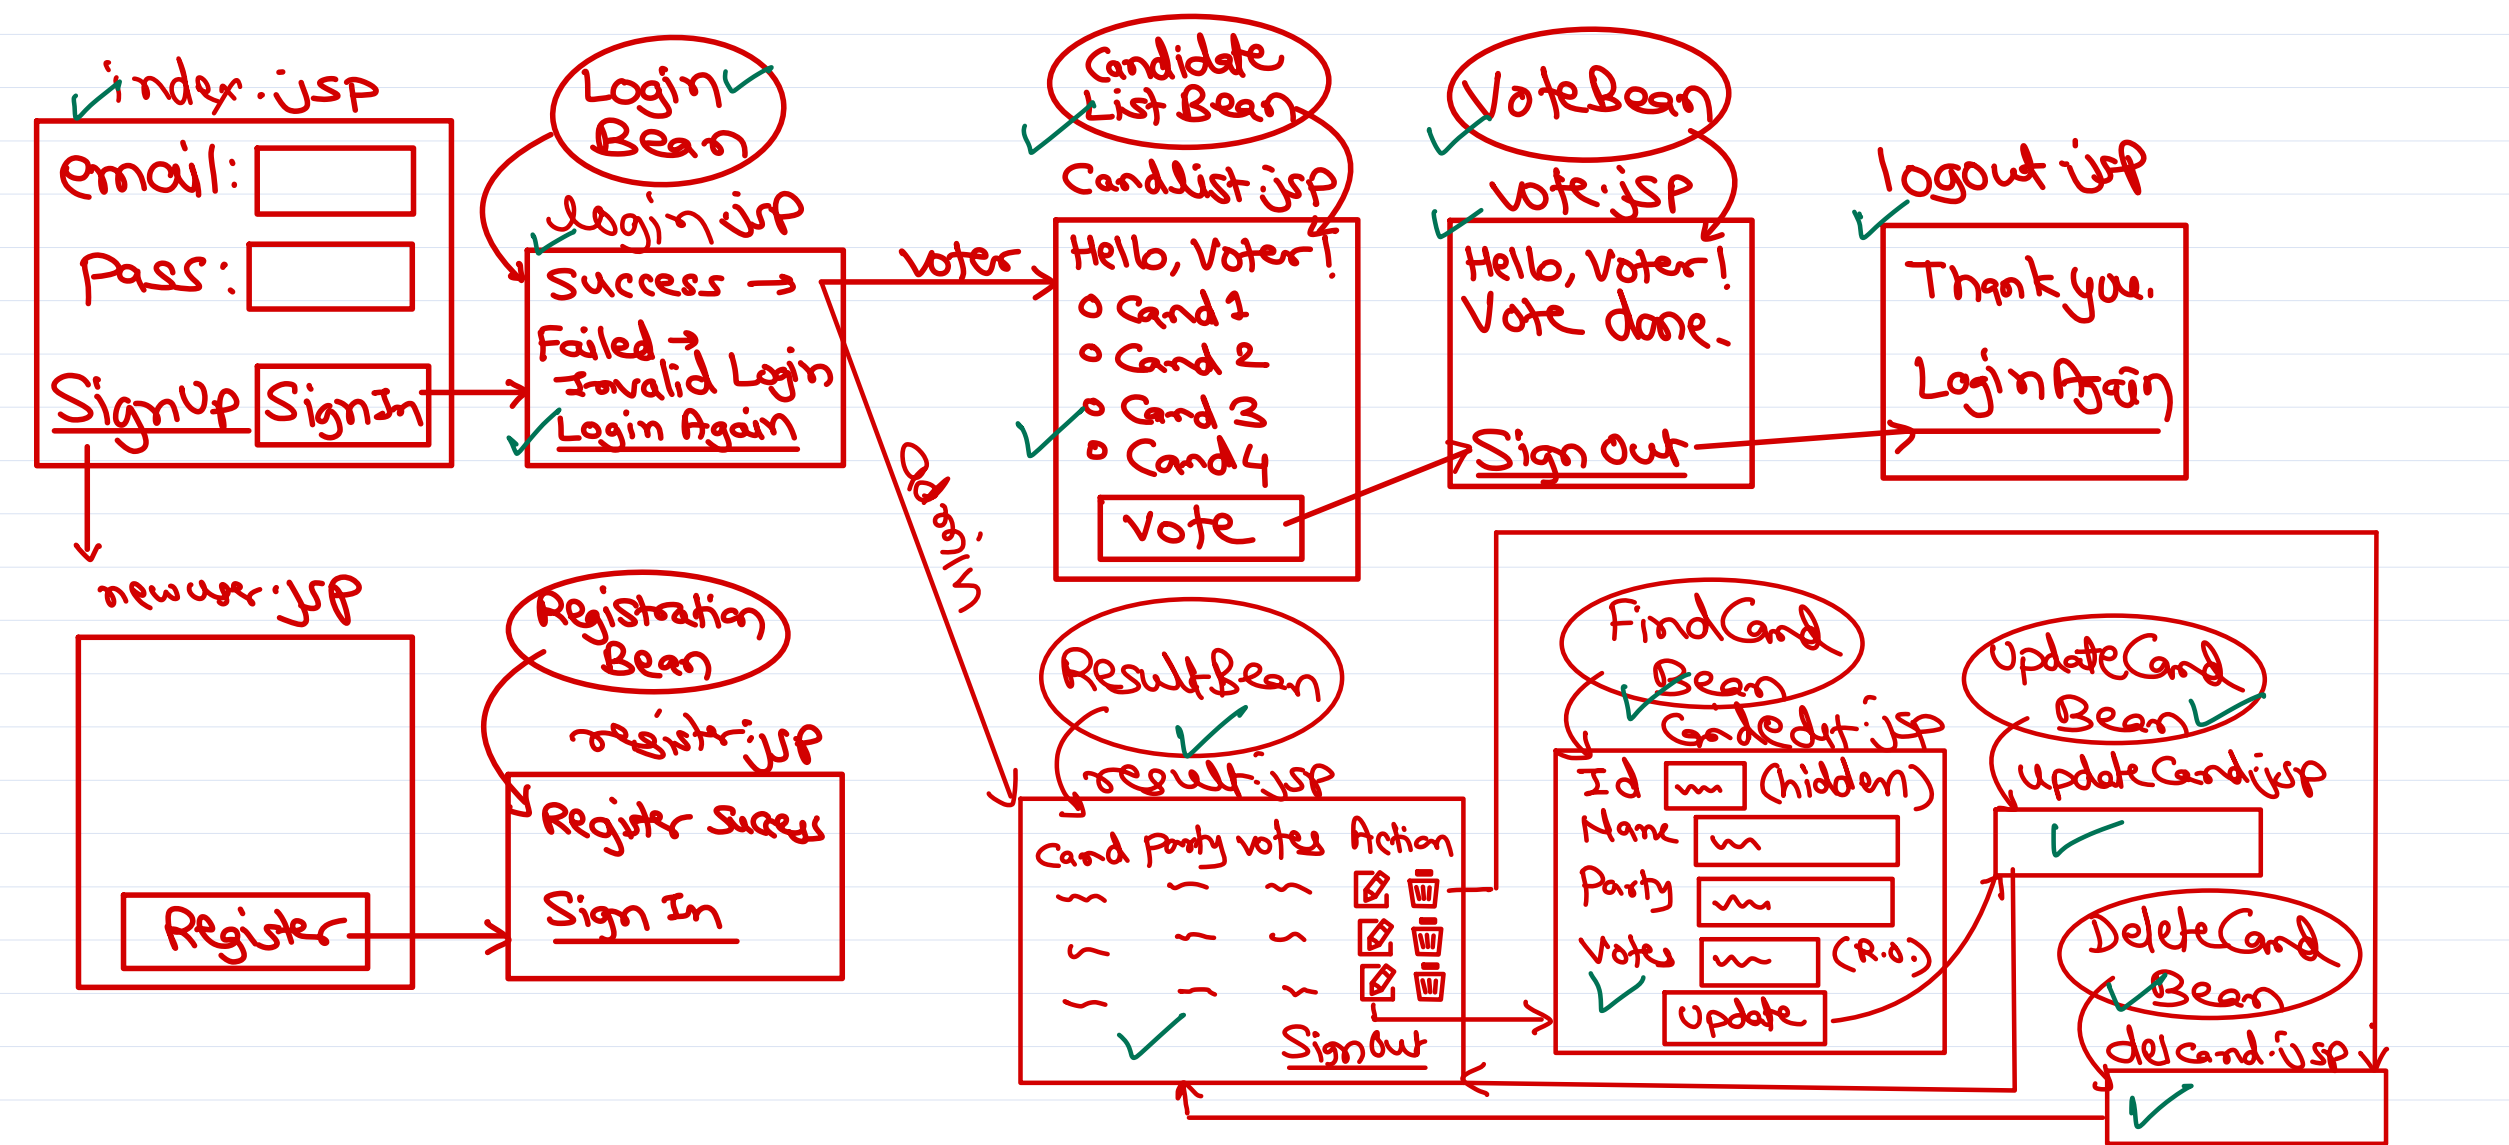 index.jsp
email:
Pass:
Sign Up
Sign In
Login
Bean
login.jsp
Success →
Failed →
Invalid Login
Login Again
Voter
admin
Candidate
List Bean
Candlist.jsp
Hello, Voter!
Cand 1
Cand 2
Cand 3
Cand 4
Vote
VoteBean
Vote.jsp
Hello, Voter!
Vote done.
Sign Out
logout.jsp
Thank you.
Login Again
newuser.jsp
Register
Registration
Bean
register.jsp
Register Success
Sign In
ResultBean
result.jsp
Cand Party Votes Action
Sign Out
FindCand
Bean
CandEdit.jsp
Id (hidden)
Name
Party
Votes (r.o.)
Update
UpdateCand
Bean
UpdateCand.jsp
DeleteCand
Bean
delCand.jsp